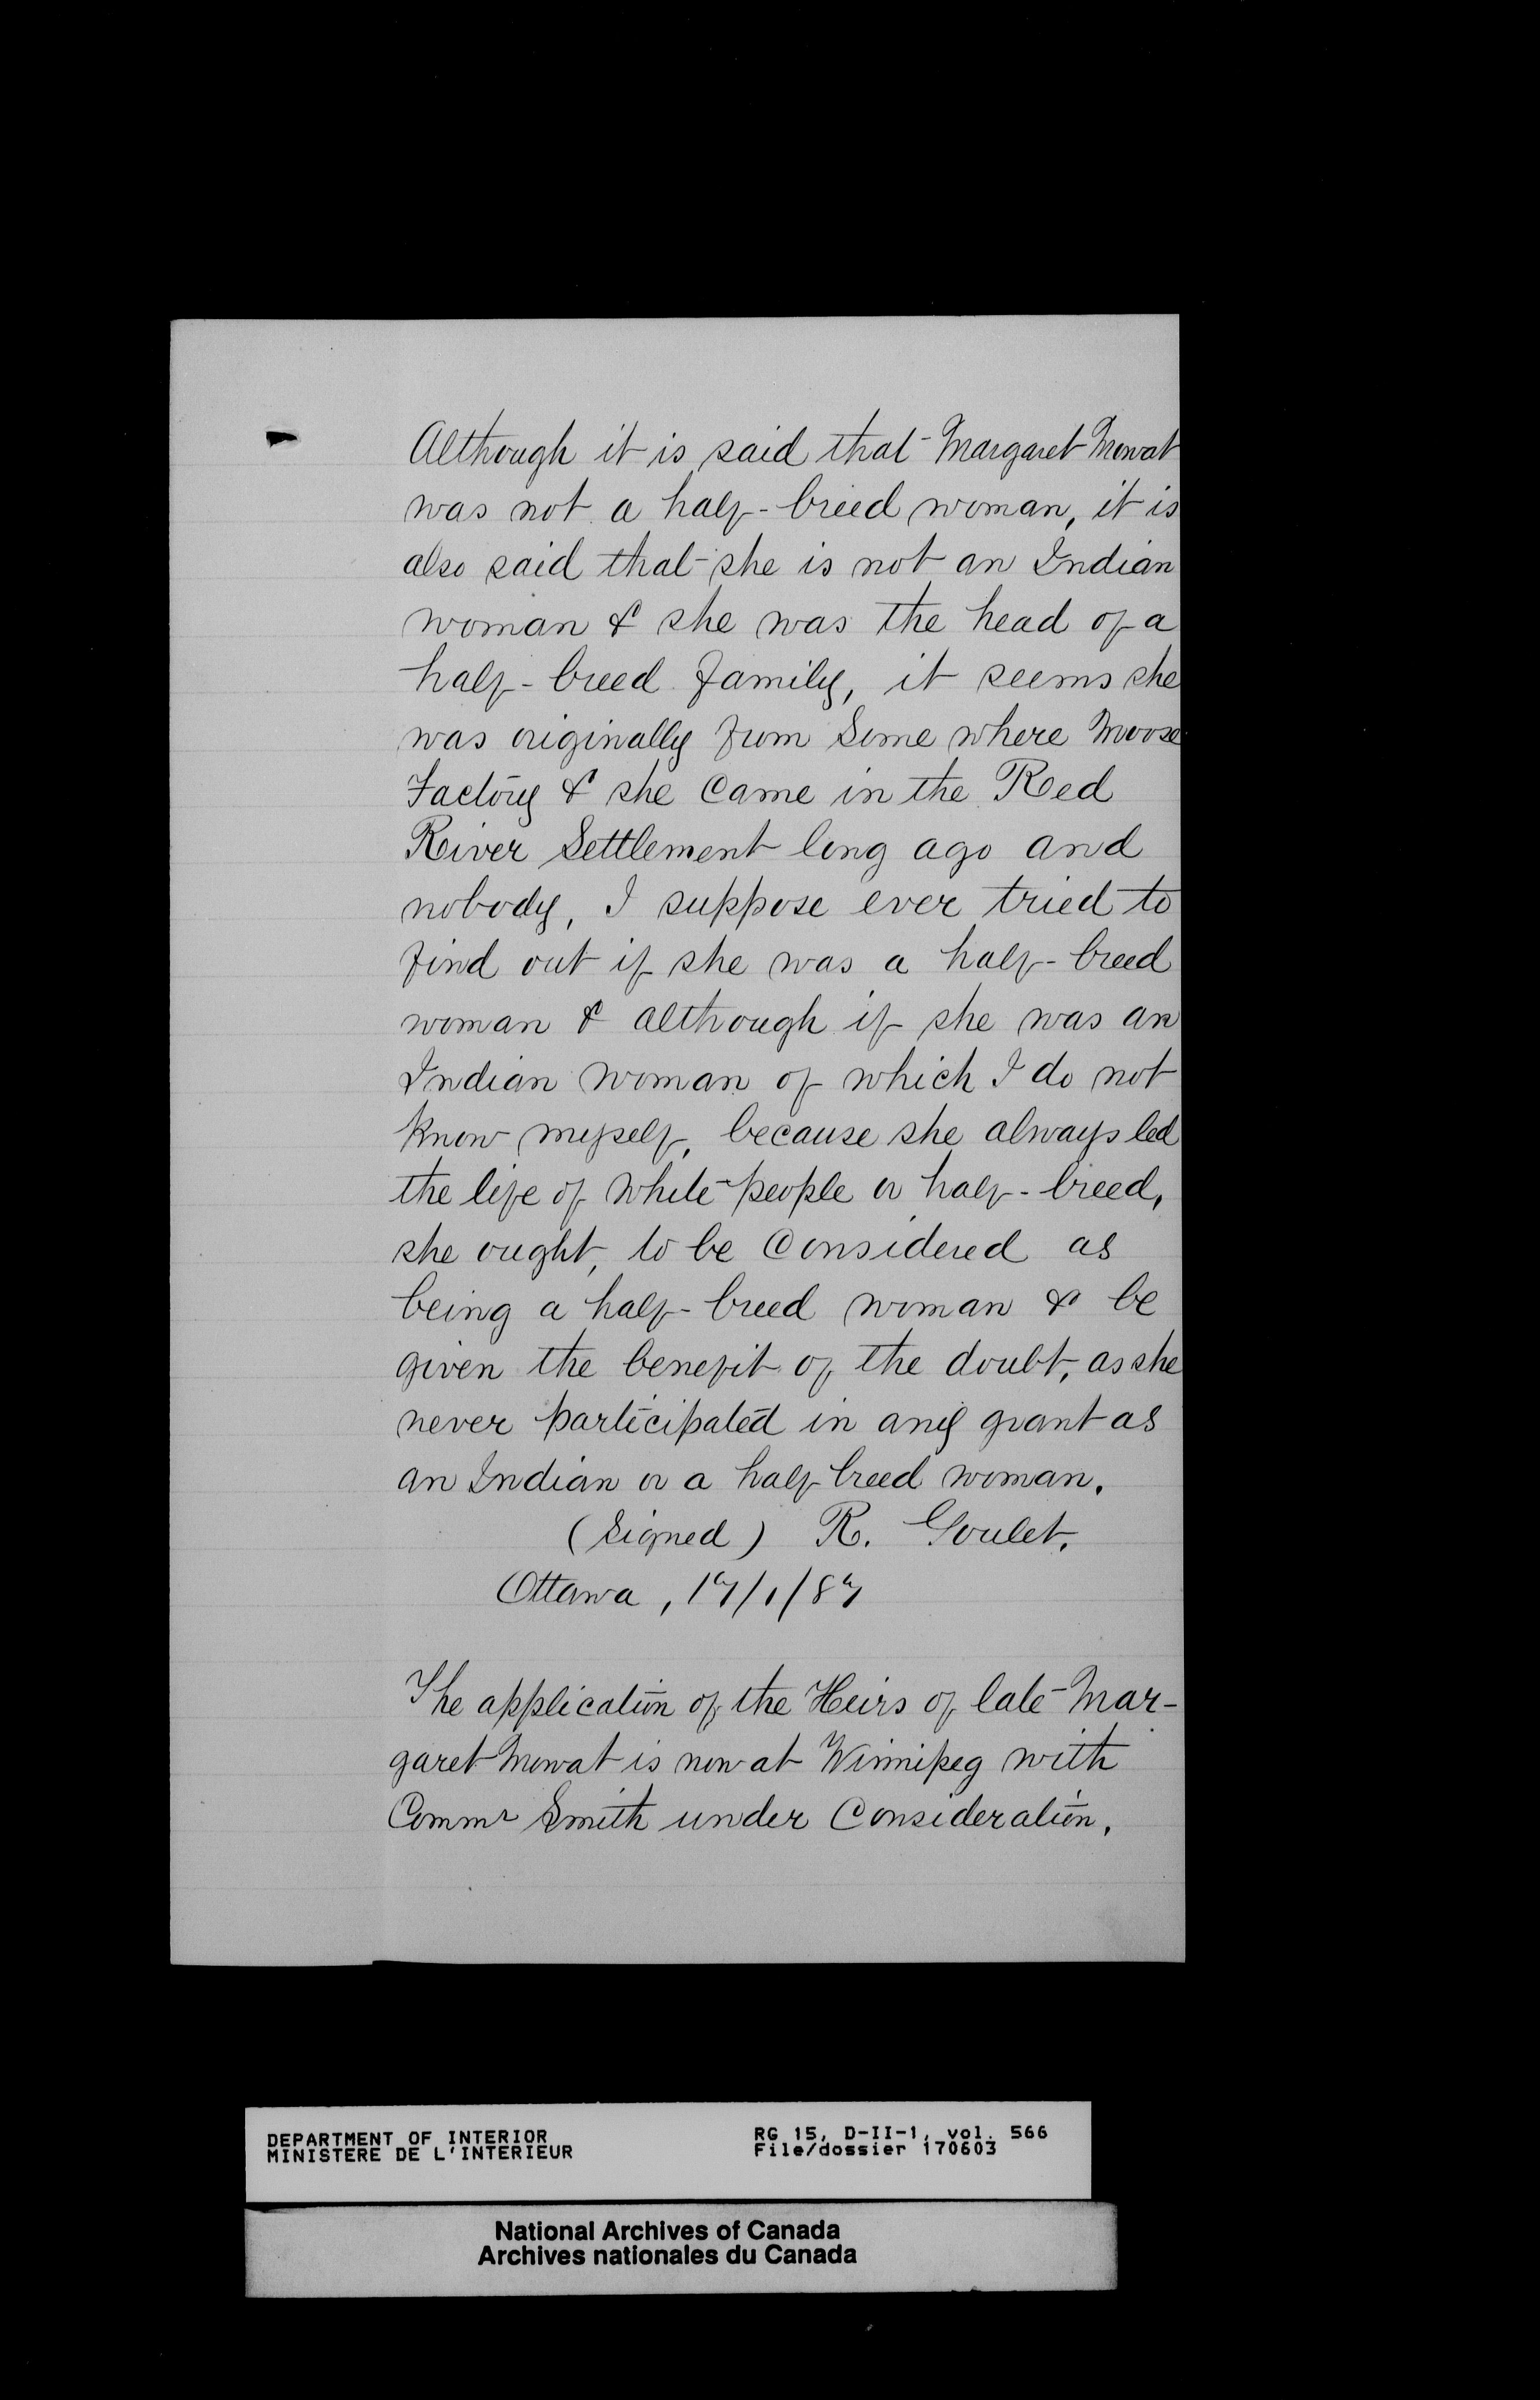 Although it is said that Margaret Mowat
was not a half-breed woman, it is
also said that she is not an Indian
woman & she was the head of a
half-breed family, it seems she
was originally from Some where Moose
Factory & she Came in the Red
River Settlement long ago and
nobody, I suppose ever tried to
find out if she was a half-breed
woman & although if she was an
Indian woman of which I do not
know myself, because she always led
the life of white people or half-breed,
she ought, to be Considered as
being a half-breed woman & be
given the benefit of the doubt, as she
never participated in any grant as
an Indian or a half breed woman.
(Signed) R. Goulet.
Ottawa, 17/1/87
The application of the Heirs of late Mar-
garet Mowat is now at Winnipeg with
Commr Smith under Consideration.
DEPARTMENT OF INTERIOR RG 15, D-II-1, vol. 566
MINISTERE DE L'INTERIEUR File/dossier 170603
National Archives of Canada
Archives nationales du Canada